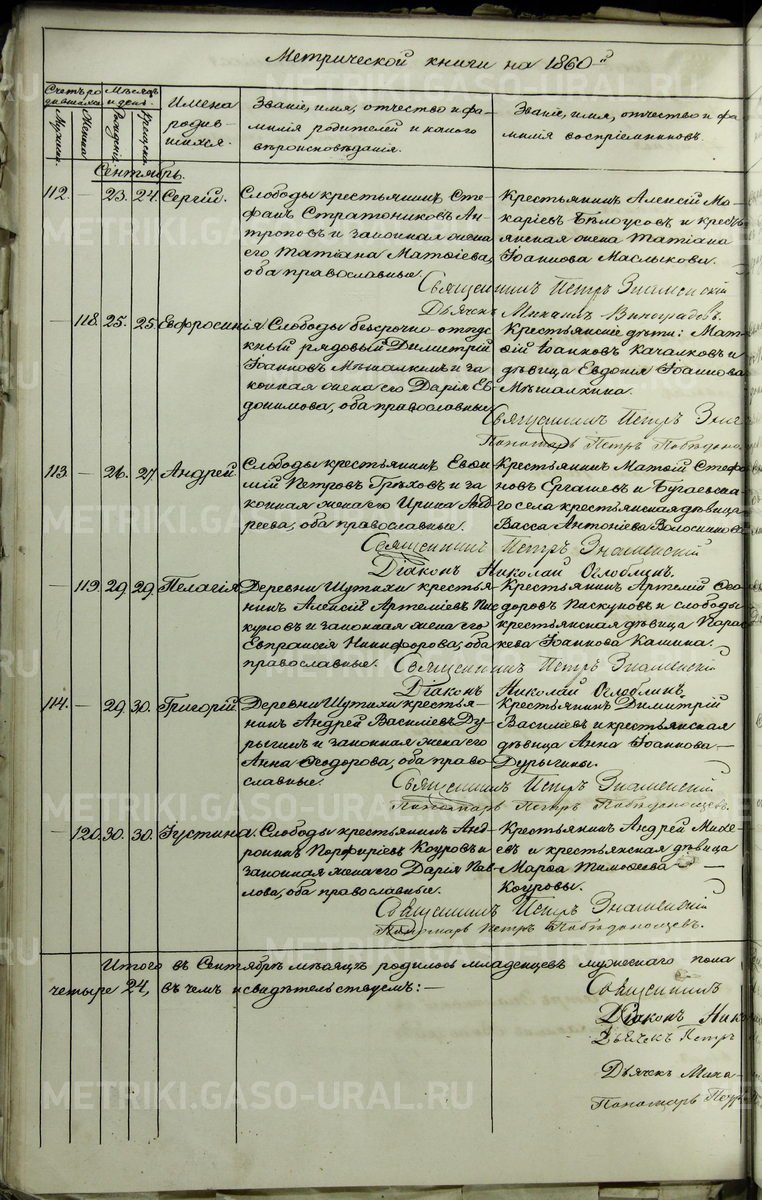 Метрической книги на 1860 й
Счетъ ро
дившихся
Мѣсяцъ
и день.
Имена
родив-
шихся.
Званіе, имя, отчество и фа-
милія родителей и какого
вѣроисповѣданія.
Званіе, имя, отчество и фа-
милія воспріемниковъ.
Мужеск.
Женска
Рожденія
Крещенія
Сентябрь.
112. — 23. 24. Сергій.
Слободы крестьянинъ Сте-
фанъ Стратониковъ Ан-
троповъ и законная жена
его Татіана Матѳіева,
оба православные.
Крестьянинъ Алексій Ма-
каріевъ Бѣлоусовъ и кресть
янская жена Татіана
Іоаннова Маслыкова.
Священникъ Петръ Знаменскій
Дьячекъ Михаилъ Виноградовъ.
— 118. 25. 25. Евфросинія
Слободы безсрочно-отпус
кный рядовый Димитрій
Іоанновъ Мѣшалкинъ и за
конная жена его Дарія Ев
докимова, оба православные
Крестьянскіе дѣти: Мат
ѳій Іоанновъ Качалковъ и
дѣвица Евдокія Іоаннова
Мѣшалкина.
Священникъ Петръ Знам
Пономарь Петръ Побѣдоно
113. — 26. 27. Андрей.
Слободы крестьянинъ Евѳи
мій Петровъ Грѣховъ и за
конная жена его Ирина Анд
реева, оба православные.
Крестьянинъ Матѳій Стефа
новъ Ергашевъ и Бугаевска
го села крестьянская дѣвица
Васса Антоніева Волосникова
Священникъ Петръ Знаменскій
Діаконъ Николай Оглоблинъ.
— 119. 29. 29. Пелагія
Деревни Шутихи крестья
нинъ Алексій Артеміевъ Пас
куновъ и законная жена его
Евпраксія Никифорова, оба
православные.
Крестьянинъ Артемій Ѳео
доровъ Паскуновъ и слободы
крестьянская дѣвица Парас
кева Іоаннова Кашина.
Священникъ Петръ Знаменскій
Діаконъ Николай Оглоблинъ.
114. — 29. 30. Григорій.
Деревни Шутихи крестья-
нинъ Андрей Василіевъ Ду-
рыгинъ и законная жена его
Анна Ѳеодорова, оба право-
славные.
Крестьянинъ Димитрій
Василіевъ и крестьянская
дѣвица Анна Іоаннова —
Дурыгины.
Священникъ Петръ Знаменскій
Пономарь Петръ Побѣдоносцевъ.
— 120. 30. 30. Іустина.
Слободы крестьянинъ Анд-
роникъ Порфиріевъ Коуровъ и
законная жена его Дарія Пав
лова, оба православные.
Крестьянинъ Андрей Михе-
евъ и крестьянская дѣвица
Марѳа Тимоѳеева —
Коуровы.
Священникъ Петръ Знаменскій
Пономарь Петръ Побѣдоносцевъ.
Итого въ Сентябрѣ мѣсяцѣ родилось младенцевъ мужескаго пола
четыре 24, въ чемъ и свидѣтельствуемъ: —
Священникъ
Діаконъ Нико
Дьячекъ Петръ
Дьячекъ Миха
Пономарь Петръ
METRIKI.GASO-URAL.RU